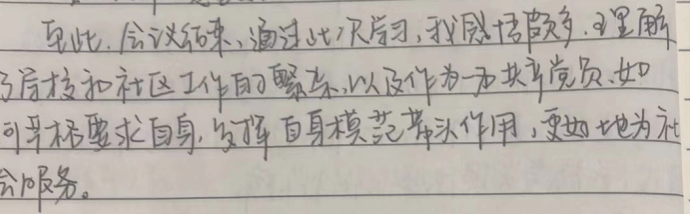 至此,会议结束,通过此次学习,我感悟颇多,理解
了居核和社区工作的繁杂,以及作为一名共产党员,如
何严格要求自身,发挥自身模范带头作用,更好地为社
会服务。